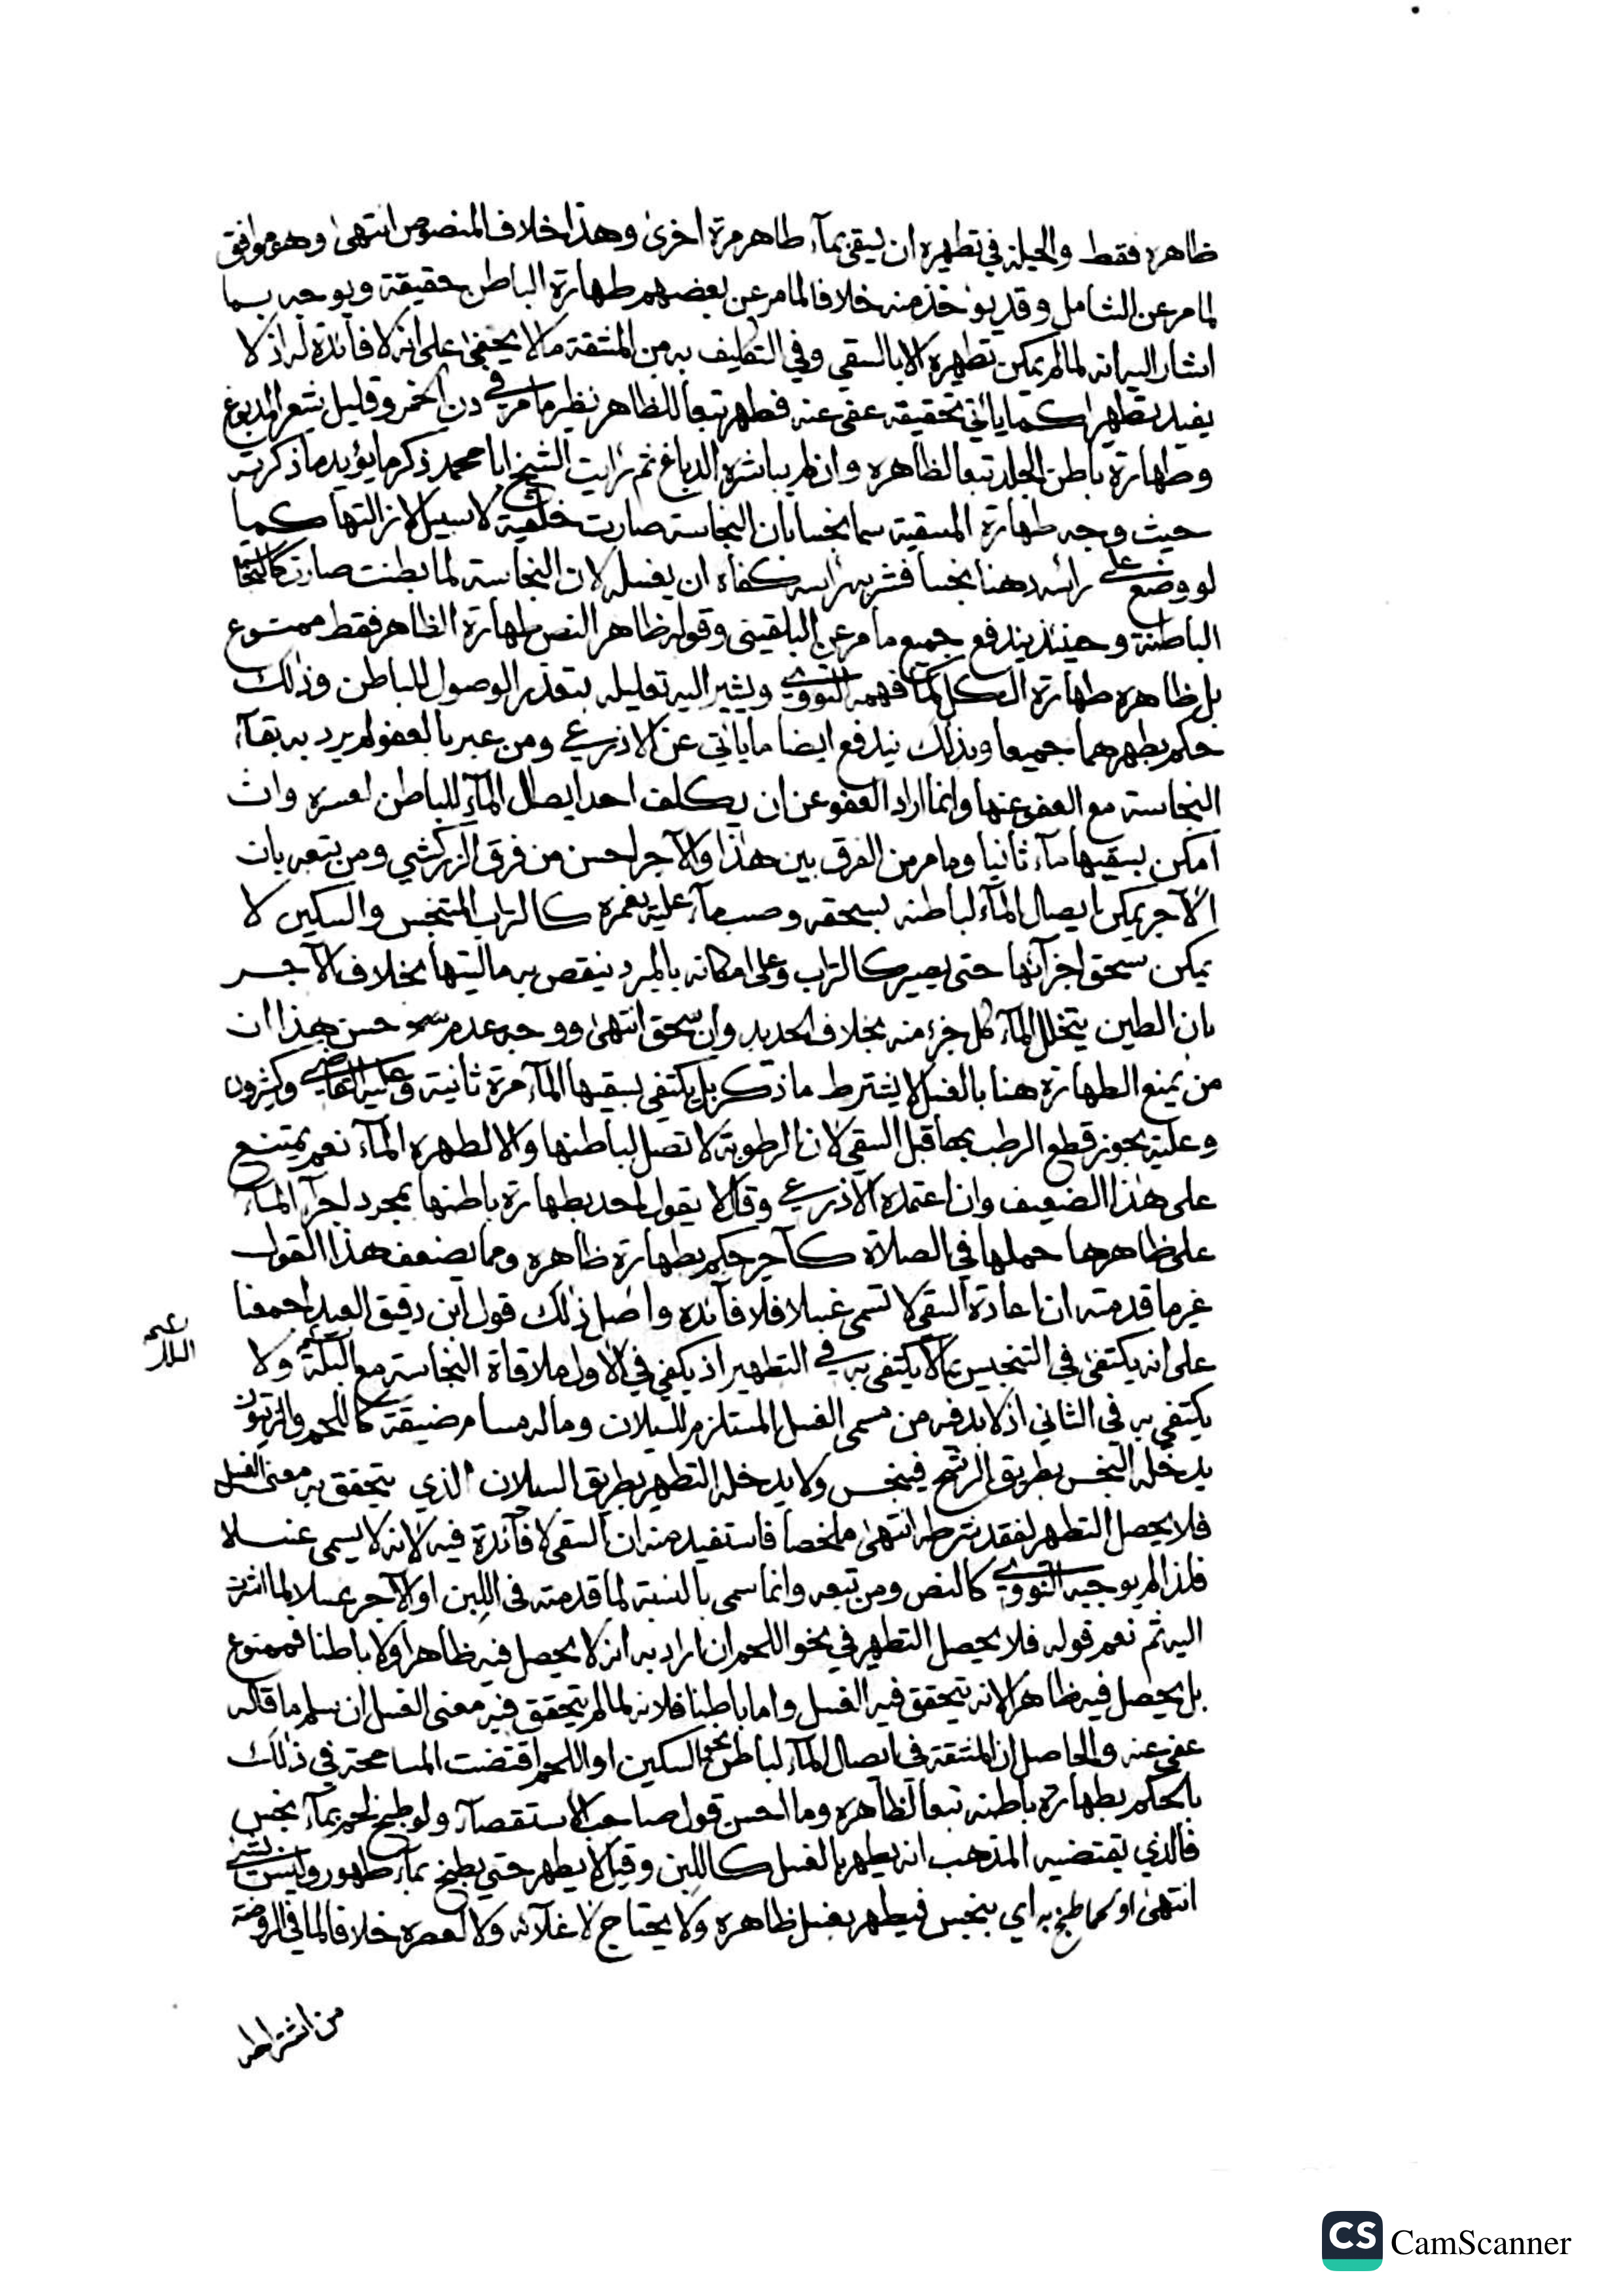 ظاهره فقط والحيلة في تطهيره ان يسقى بمآء طاهر مرة اخرى وهذا خلاف المنصوص انتهى وهو موافق
لما مر عن الشامل وقد يؤخذ منه خلافا لما مر عن بعضهم طهارة الباطن حقيقة ويوجه بما
اشار اليه انه لما لم يمكن تطهيره الا بالسقي وفي التكليف به من المشقة ما لا يخفى على انه لا فائدة له اذ لا
يفيد تطهيرا كما ياتي تحقيقه عفى عنه فطهر تبعا للظاهر نظير ما مر في دن الخمر وقليل شعر المدبوغ
وطهارة باطن الجلد تبعا لظاهره وان لم يباشره الدباغ ثم رايت الشيخ ابا محمد ذكر ما يؤيد ما ذكرته
حيث وجه طهارة المسقية سما نجسا بان النجاسة صارت خلقية لا سبيل لازالتها كما
لو وضع على راسه دهنا نجسا فشربه راسه كفاه ان يغسله لان النجاسة لما بطنت صارت كالنجاسة
الباطنة وحينئذ يندفع جميع ما مر عن البلقيني وقوله ظاهر النص طهارة الظاهر فقط ممنوع
بل ظاهره طهارة الكل كما فهمه النووي ويشير اليه تعليله بتعذر الوصول للباطن وذلك
حكم بطهرهما جميعا وبذلك يندفع ايضا ما ياتي عن الاذرعي ومن عبر بالعفو لم يرد به بقآء
النجاسة مع العفو عنها وانما اراد العفو عن ان يكلف احد ايصال المآء للباطن لعسره وان
امكن بسقيها مآء ثانيا وما مر من الفرق بين هذا والآجر احسن من فرق الزركشي ومن تبعه بان
الآجر يمكن ايصال المآء لباطنه بسحقه وصب مآء عليه يغمره كالتراب المتنجس والسكين لا
يمكن سحق اجزآئها حتى يصير كالتراب وعلى امكانه بالمبرد ينقص به ماليتها بخلاف الآجر
بان الطين يتخلل المآء كل جزء منه بخلاف الحديد وان سحق انتهى ووجه عدم حسن هذا ان
من يمنع الطهارة هنا بالغسل لا يشترط ما ذكر بل يكتفي بسقيها المآء مرة ثانية وعليه القاضي وكثيرون
وعليه يجوز قطع الرطب بها قبل السقي لان الرطوبة لا تصل لباطنها والا لطهره المآء نعم يمتنع
على هذا الضعيف وان اعتمده الاذرعي وقال لا يقول احد بطهارة باطنها بمجرد اجرآء المآء
على ظاهرها حملها في الصلاة كآجر حكم بطهارة ظاهره ومما يضعف هذا القول
غير ما قدمته ان اعادة السقي لا تسمى غسلا فلا فآئدة واصل ذلك قول ابن دقيق العيد اجمعنا
على انه يكتفى في التنجيس بما لا يكتفى به في التطهير اذ يكفي في الاول ملاقاة النجاسة مع البلة ولا
يكتفي به في الثاني اذ لا بد فيه من مسمى الغسل المستلزم للسيلان وما له مسام ضيقة كاللحم والزيتون
يدخله النجس بطريق الرشح فينجس ولا يدخله التطهير بطريق السيلان الذي يتحقق به معنى الغسل
فلا يحصل التطهير لفقد شرطه انتهى ملخصا فاستفيد منه ان السقي لا فآئدة فيه لانه لا يسمى غسلا
فلذا لم يوجبه النووي كالنص ومن تبعه وانما سمى بالنسبة لما قدمته في اللبن او الآجر غسلا لما اشرت
اليه ثم نعم قوله فلا يحصل التطهير في نحو اللحم ان اراد به انه لا يحصل فيه ظاهرا ولا باطنا فممنوع
بل يحصل فيه ظاهرا لانه يتحقق فيه الغسل واما باطنا فلانه لما لم يتحقق فيه معنى الغسل ان سلم ما قاله
عفي عنه والحاصل ان المشقة في ايصال المآء لباطن نحو السكين او اللحم اقتضت المسامحة في ذلك
بالحكم بطهارة باطنه تبعا لظاهره وما احسن قول صاحب الاستقصآء ولو طبخ لحم بمآء نجس
فالذي يقتضيه المذهب انه يطهر بالغسل كاللبن وقيل لا يطهر حتى يطبخ بمآء طهور وليس بشي
انتهى او لحما طبخ به اي بنجس فيطهر بغسل ظاهره ولا يحتاج لاغلآئه ولا لعصره خلافا لما في الروضة
من اشتراط